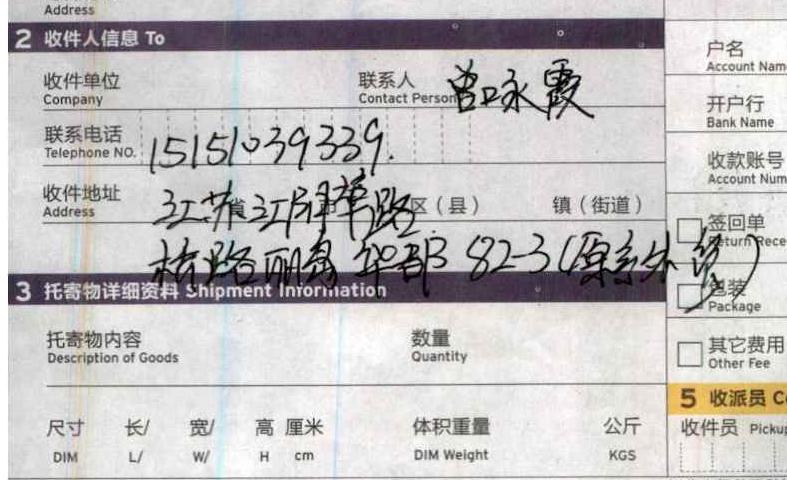 Address
2 收件人信息 To
收件单位
Company
联系人
Contact Person
曾咏霞
联系电话
Telephone NO.
15151039339.
收件地址
Address
江苏省江阴
路
区（县）
镇（街道）
路丽都华都 82-3（原
3 托寄物详细资料 Shipment Information
托寄物内容
Description of Goods
数量
Quantity
尺寸 长/ 宽/ 高 厘米
DIM L/ W/ H cm
体积重量
DIM Weight
公斤
KGS
户名
Account Nam
开户行
Bank Name
收款账号
Account Num
签回单
Return Rece
包装
Package
其它费用
Other Fee
5 收派员 Co
收件员 Pickup